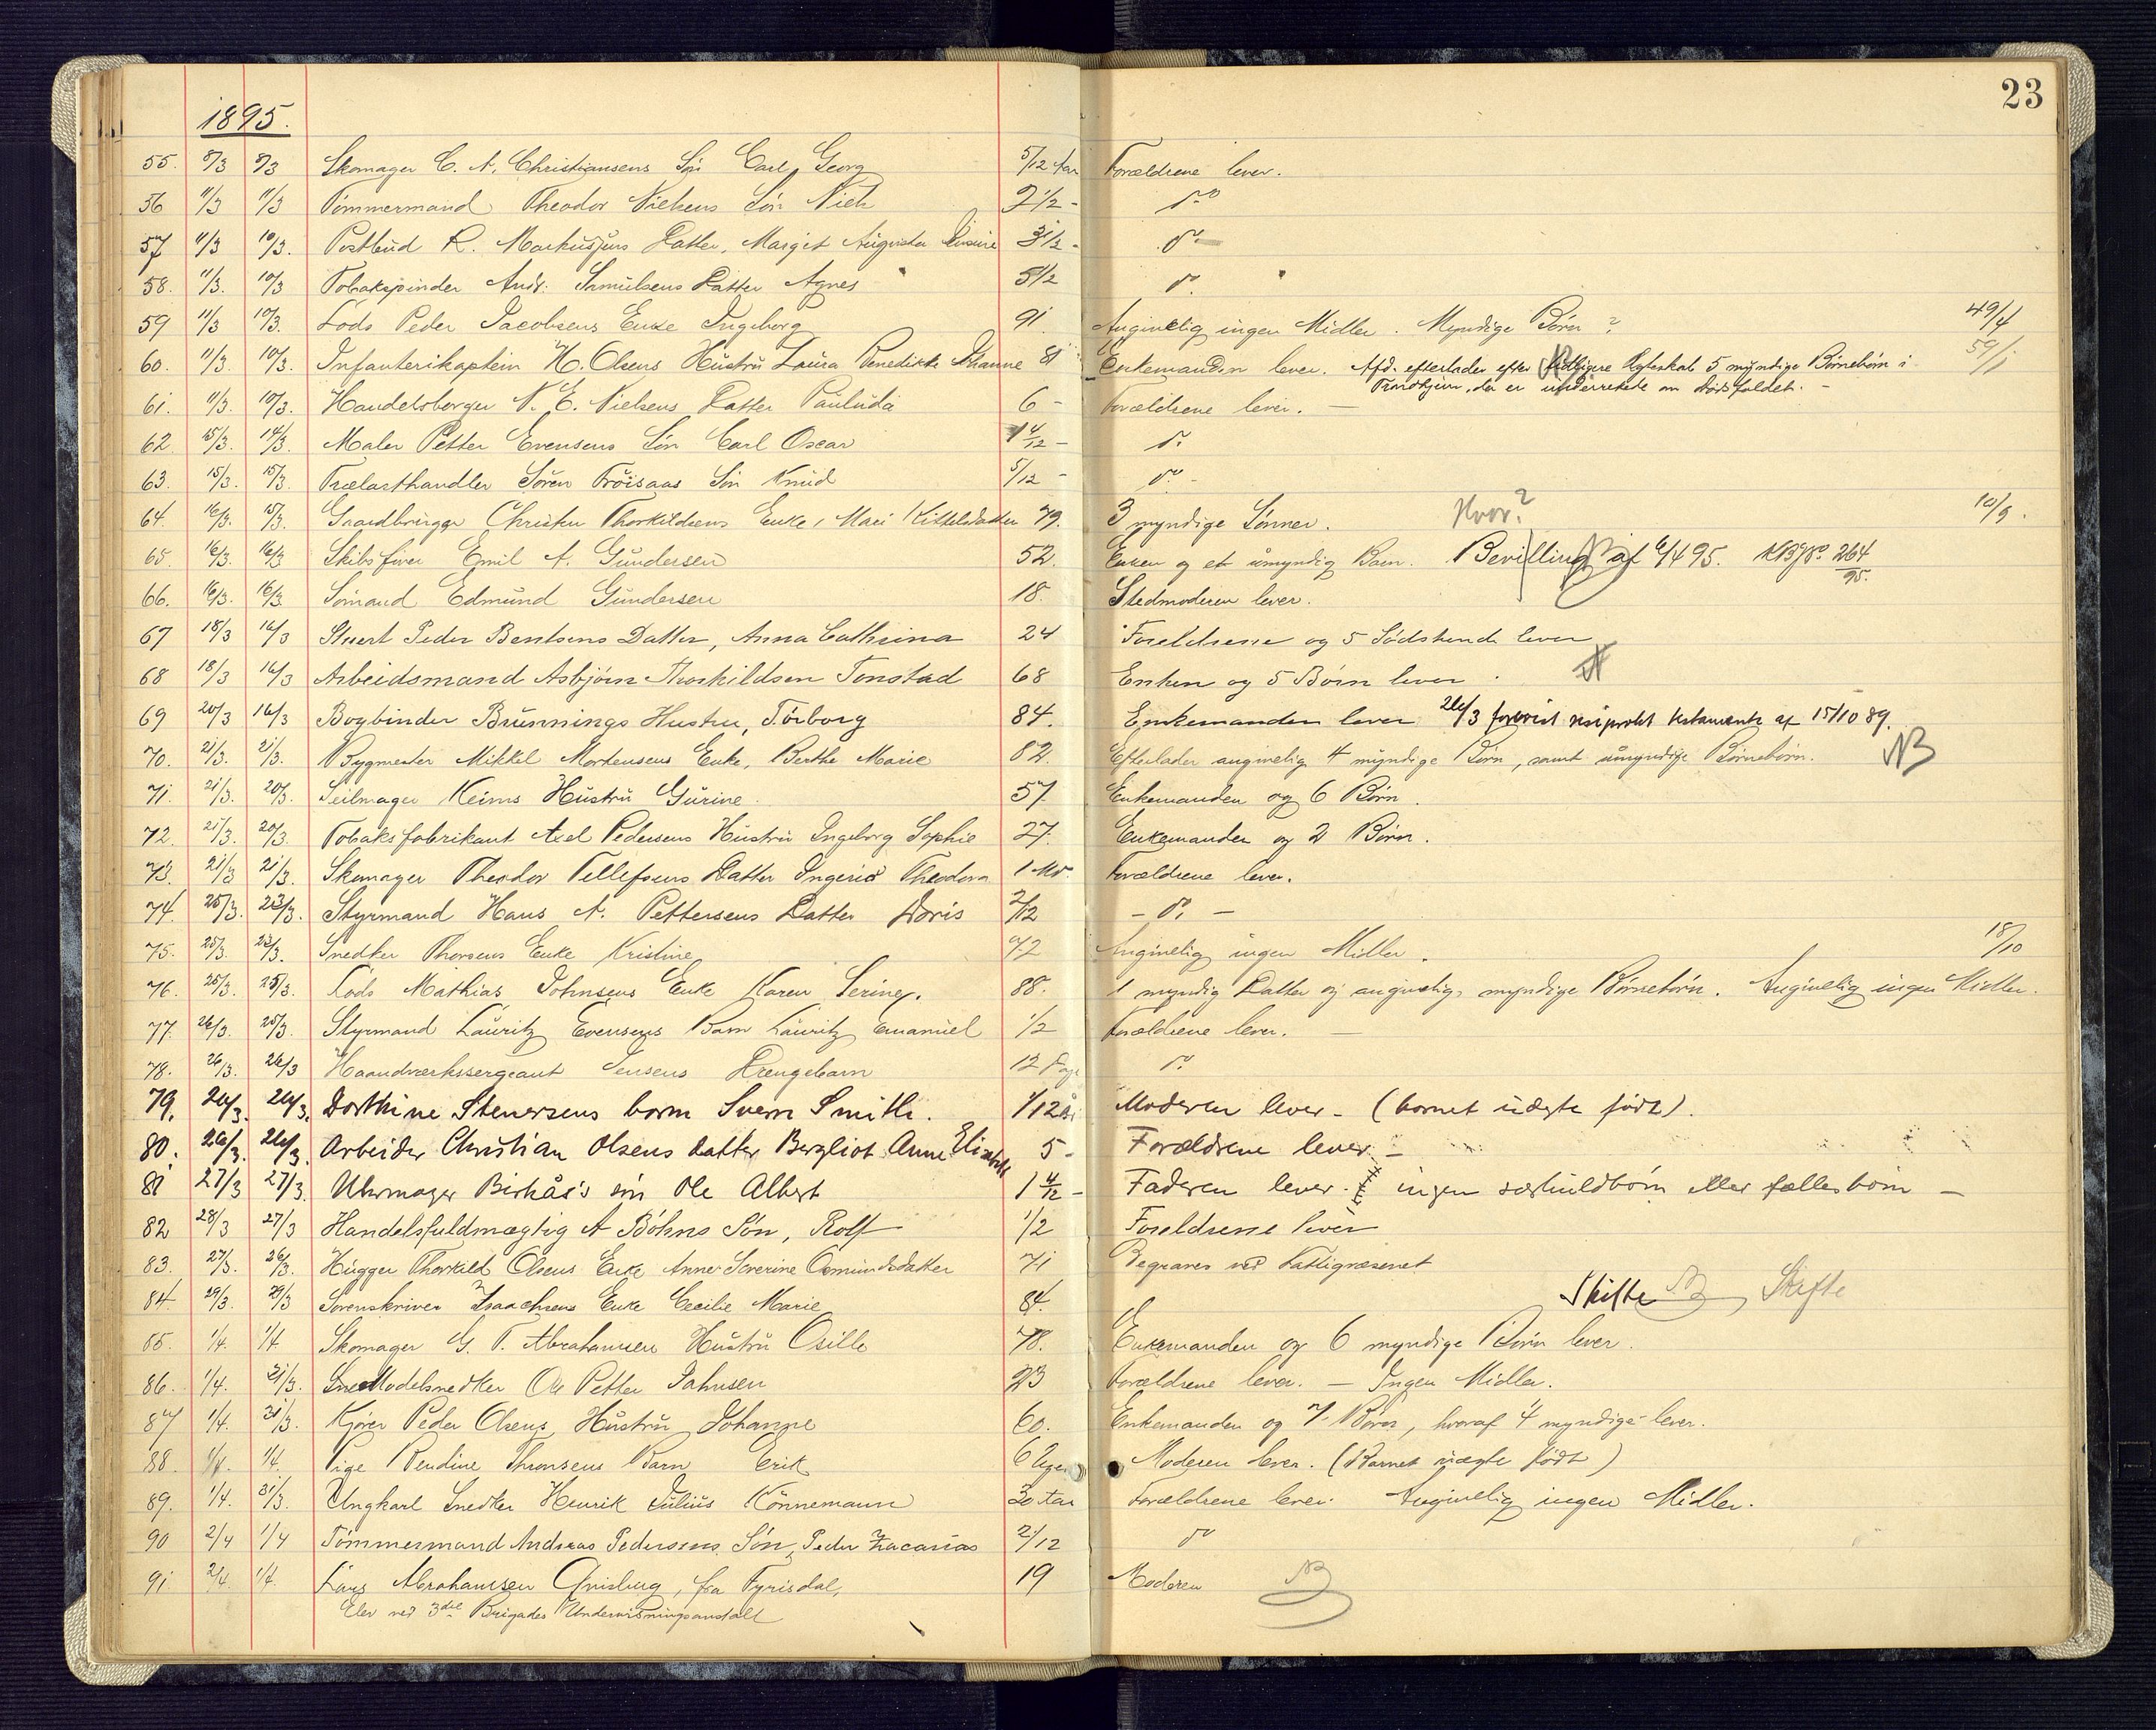 23
1895.
55. 8/3 8/3 Skomager C. A. Christiansens Søn Carl Georg 5/12 Aar Forældrene lever.
56 11/3 11/3 Tømmermand Theodor Nielsens Søn Niels 2 1/2 - do
57 11/3 10/3. Postbud R. Markussens Datter, Margit Augusta 3 1/2 - do
58. 11/3. 10/3 Tobakspinder Andr. Samuelsens Datter Agnes 5 1/2 do.
59 11/3 10/3. Lods Peder Jacobsens Enke Ingeborg 91. Angivelig ingen Midler. Myndige Børn? 49/4
60. 11/3. 10/3. Infanterikaptein H. Olsens Hustru Laura Benedikte Johanne 81 Enkemanden lever. Afd. efterlader efter tidligere Egteskab 5 myndige Børnebørn i 59/1
Trondhjem, der er underrettede om dødsfaldet. -
61. 11/3. 10/3. Handelsborger N. E. Nielsens Datter Paulüda 6 - Forældrene lever. -
62 15/3. 14/3. Maler Petter Evensens Søn Carl Oscar 1 4/12 - do
63. 15/3. 15/3. Trælasthandler Søren Frøisaas Søn Knud 5/12 - do -
64. 16/3. 15/3. Gaardbruger Christen Thorkildsens Enke, Mari Kittelsdatter 79. 3 myndige Sønner. Hvor? 10/9.
65. 16/3. 16/3 Skibsfører Emil A. Gundersen 52. Enken og et umyndig Barn. Bevilling af 6/4 95. No 264/95.
66. 16/3. 16/3. Sømand Edmund Gundersen 18. Stedmoderen lever.
67 18/3 16/3 Stuert Peder Bentsens Datter, Anna Cathrina 24 Foreldrene og 5 Sødskende lever
68 18/3 16/3 Arbeidsmand Asbjørn Thorkildsen Tonstad 68 Enken og 5 Børn lever.
69 20/3 16/3 Bogbinder Brünnings Hustru, Torborg 84. Enkemanden lever 26/3 forevist resiprokt testamente af 15/10 89.
70. 21/3. 21/3. Bygmester Mikkel Mortensens Enke, Berthe Marie 82. Efterlader angivelig 4 myndige Børn, samt umyndige Børnebørn. NB
71. 21/3. 20/3. Seilmager Keims Hustru Gurine. 57. Enkemanden og 6 Børn.
72. 21/3. 20/3. Tobaksfabrikant Axel Pedersens Hustru Ingeborg Sophie 27. Enkemanden og 2 Børn.
73. 21/3 21/3. Skomager Theodor Tellefsens Datter Ingerid Theodora 1 Md. Forældrene lever.
74. 25/3. 23/3. Styrmand Hans A. Pettersens Datter Doris 2/12 - do -
75. 25/3. 23/3. Snedker Thorsens Enke Kristine 72 Angivelig ingen Midler. 18/10
76. 25/3. 25/3. Lods Mathias Johnsens Enke Karen Serine. 88. 1 myndig Datter og angivelig myndige Børnebørn. Angivelig ingen Midler.
77. 26/3. 25/3. Styrmand Lauritz Evensens Barn Lauritz Emanuel 1/2 Forældrene lever. -
78. 26/3. 26/3 Haandværkssergeant Jensens Drengebarn 12 Dage do
79. 26/3. 26/3. Dorthine Stenersens barn Sverre Smith. 1/12 år Moderen lever - (barnet uægte født).
80. 26/3. 26/3. Arbeider Christian Olsens datter Bergliot Anne Elisabeth 5 - Forældrene lever -
81 27/3 27/3. Uhrmager Birkås's søn Ole Albert 1 4/12 - Faderen lever. ingen særkuldbørn eller fællesbørn -
82 28/3 27/3 Handelsfuldmægtig A Bøhns Søn, Rolf 1/2 Foreldrene lever
83. 27/3. 26/3. Hugger Thorkild Olsens Enke Anne Severine Osmundsdatter 71 Begraves ved Fattigvæsenet
84. 29/3. 29/3 Sorenskriver Isaachsens Enke Cecilie Marie 84. Skifte NB Skifte
85. 1/4. 1/4 Skomager G. T. Abrahamsen Hustru Osille 78. Enkemanden og 6 myndige Børn lever.
86. 1/4. 31/3. Modelsnedker Ole Petter Jahnsen 23 Forældrene lever. - Ingen Midler.
87 1/4. 31/3. Kjører Peder Olsens Hustru Johanne 60. Enkemanden og 7 Børn, hvoraf 4 myndige lever.
88. 1/4. 1/4. Pige Bendine Thronsens Barn Erik 6 Uger Moderen lever. (Barnet uægte født)
89. 1/4. 31/3. Ungkarl Snedker Henrik Julius Könnemann 30 Aar Forældrene lever. Angivelig ingen Midler.
90 2/4 1/4 Tømmermand Andreas Pedersens Søn, Peder Zacarias 2/12 do
91. 2/4. 1/4. Lars Abrahamsen Qvisberg, fra Fyrisdal, 19 Moderen NB
Elev ved 3die Brigades Underviisningsanstalt